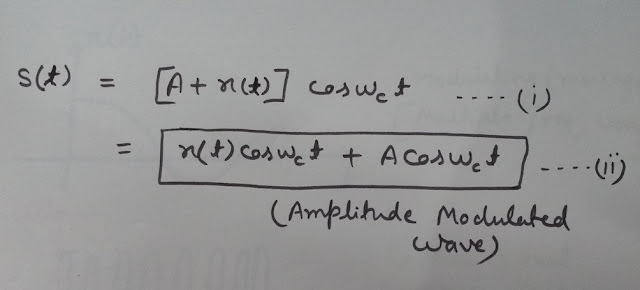 S(t) = [A + x(t)] cosω꜀t ---- (i)
= x(t)cosω꜀t + Acosω꜀t ---- (ii)
(Amplitude Modulated
wave)